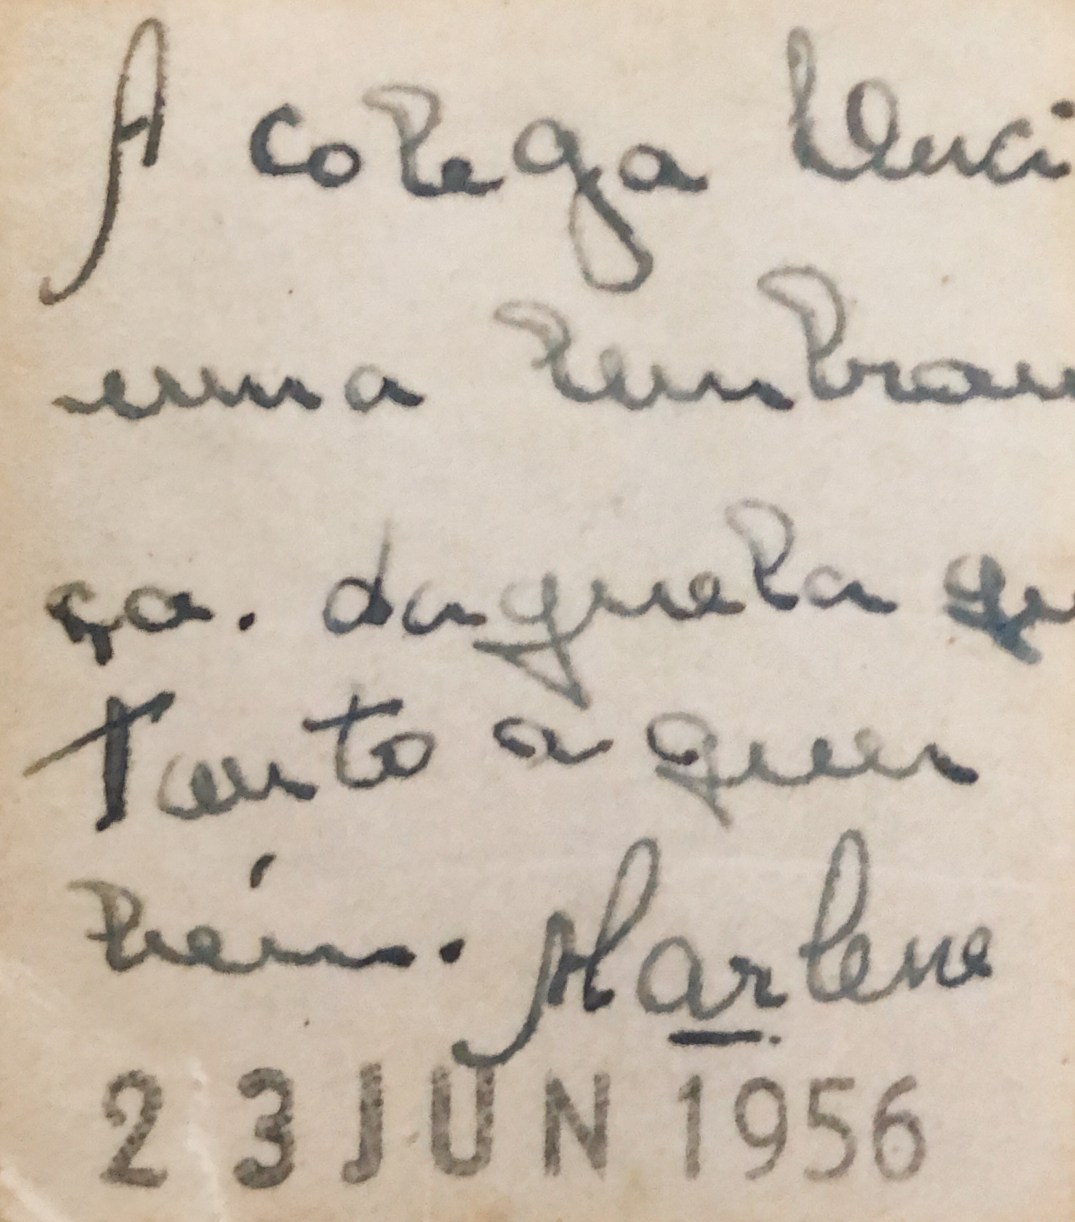 A colega
uma lembran
ça. daquela qu
Tanto a quer
bém. Marlene
23 JUN 1956